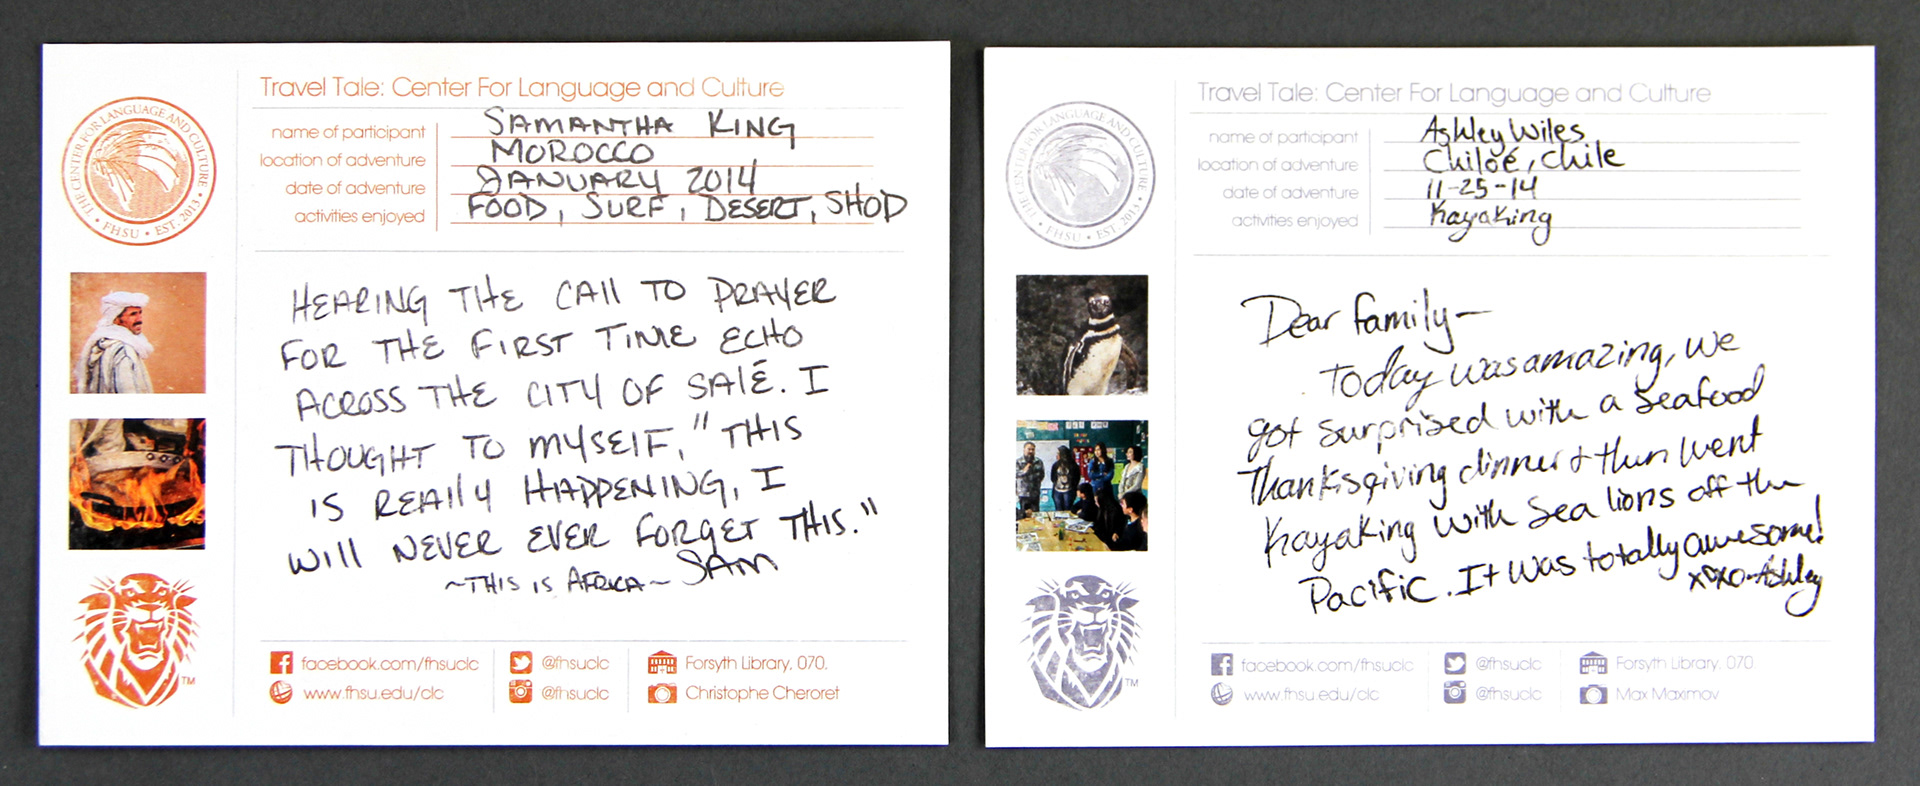 Travel Tale: Center For Language and Culture
THE CENTER FOR LANGUAGE AND CULTURE
• FHSU • EST. 2013 •
name of participant SAMANTHA KING
location of adventure MOROCCO
date of adventure JANUARY 2014
activities enjoyed FOOD, SURF, DESERT, SHOP
HEARING THE CAll TO PRAYER
FOR THE FIRST TIME ECHO
ACROSS THE CITY OF SALÉ. I
THOUGHT TO MYSElF, "THIS
IS REAllY HAPPENING, I
WIll NEVER EVER FORGET THIS."
~THIS IS AFRICA~ SAM
TM
facebook.com/fhsuclc @fhsuclc Forsyth Library, 070,
www.fhsu.edu/clc @fhsuclc Christophe Cheroret
Travel Tale: Center For Language and Culture
THE CENTER FOR LANGUAGE AND CULTURE
• FHSU • EST. 2013 •
name of participant Ashley Wiles
location of adventure Chiloé, Chile
date of adventure 11-25-14
activities enjoyed Kayaking
Dear family—
Today was amazing, we
got surprised with a seafood
Thanksgiving dinner & then went
Kayaking with sea lions off the
Pacific. It was totally awesome!
xoxo-Ashley
TM
facebook.com/fhsuclc @fhsuclc Forsyth Library, 070
www.fhsu.edu/clc @fhsuclc Max Maximov